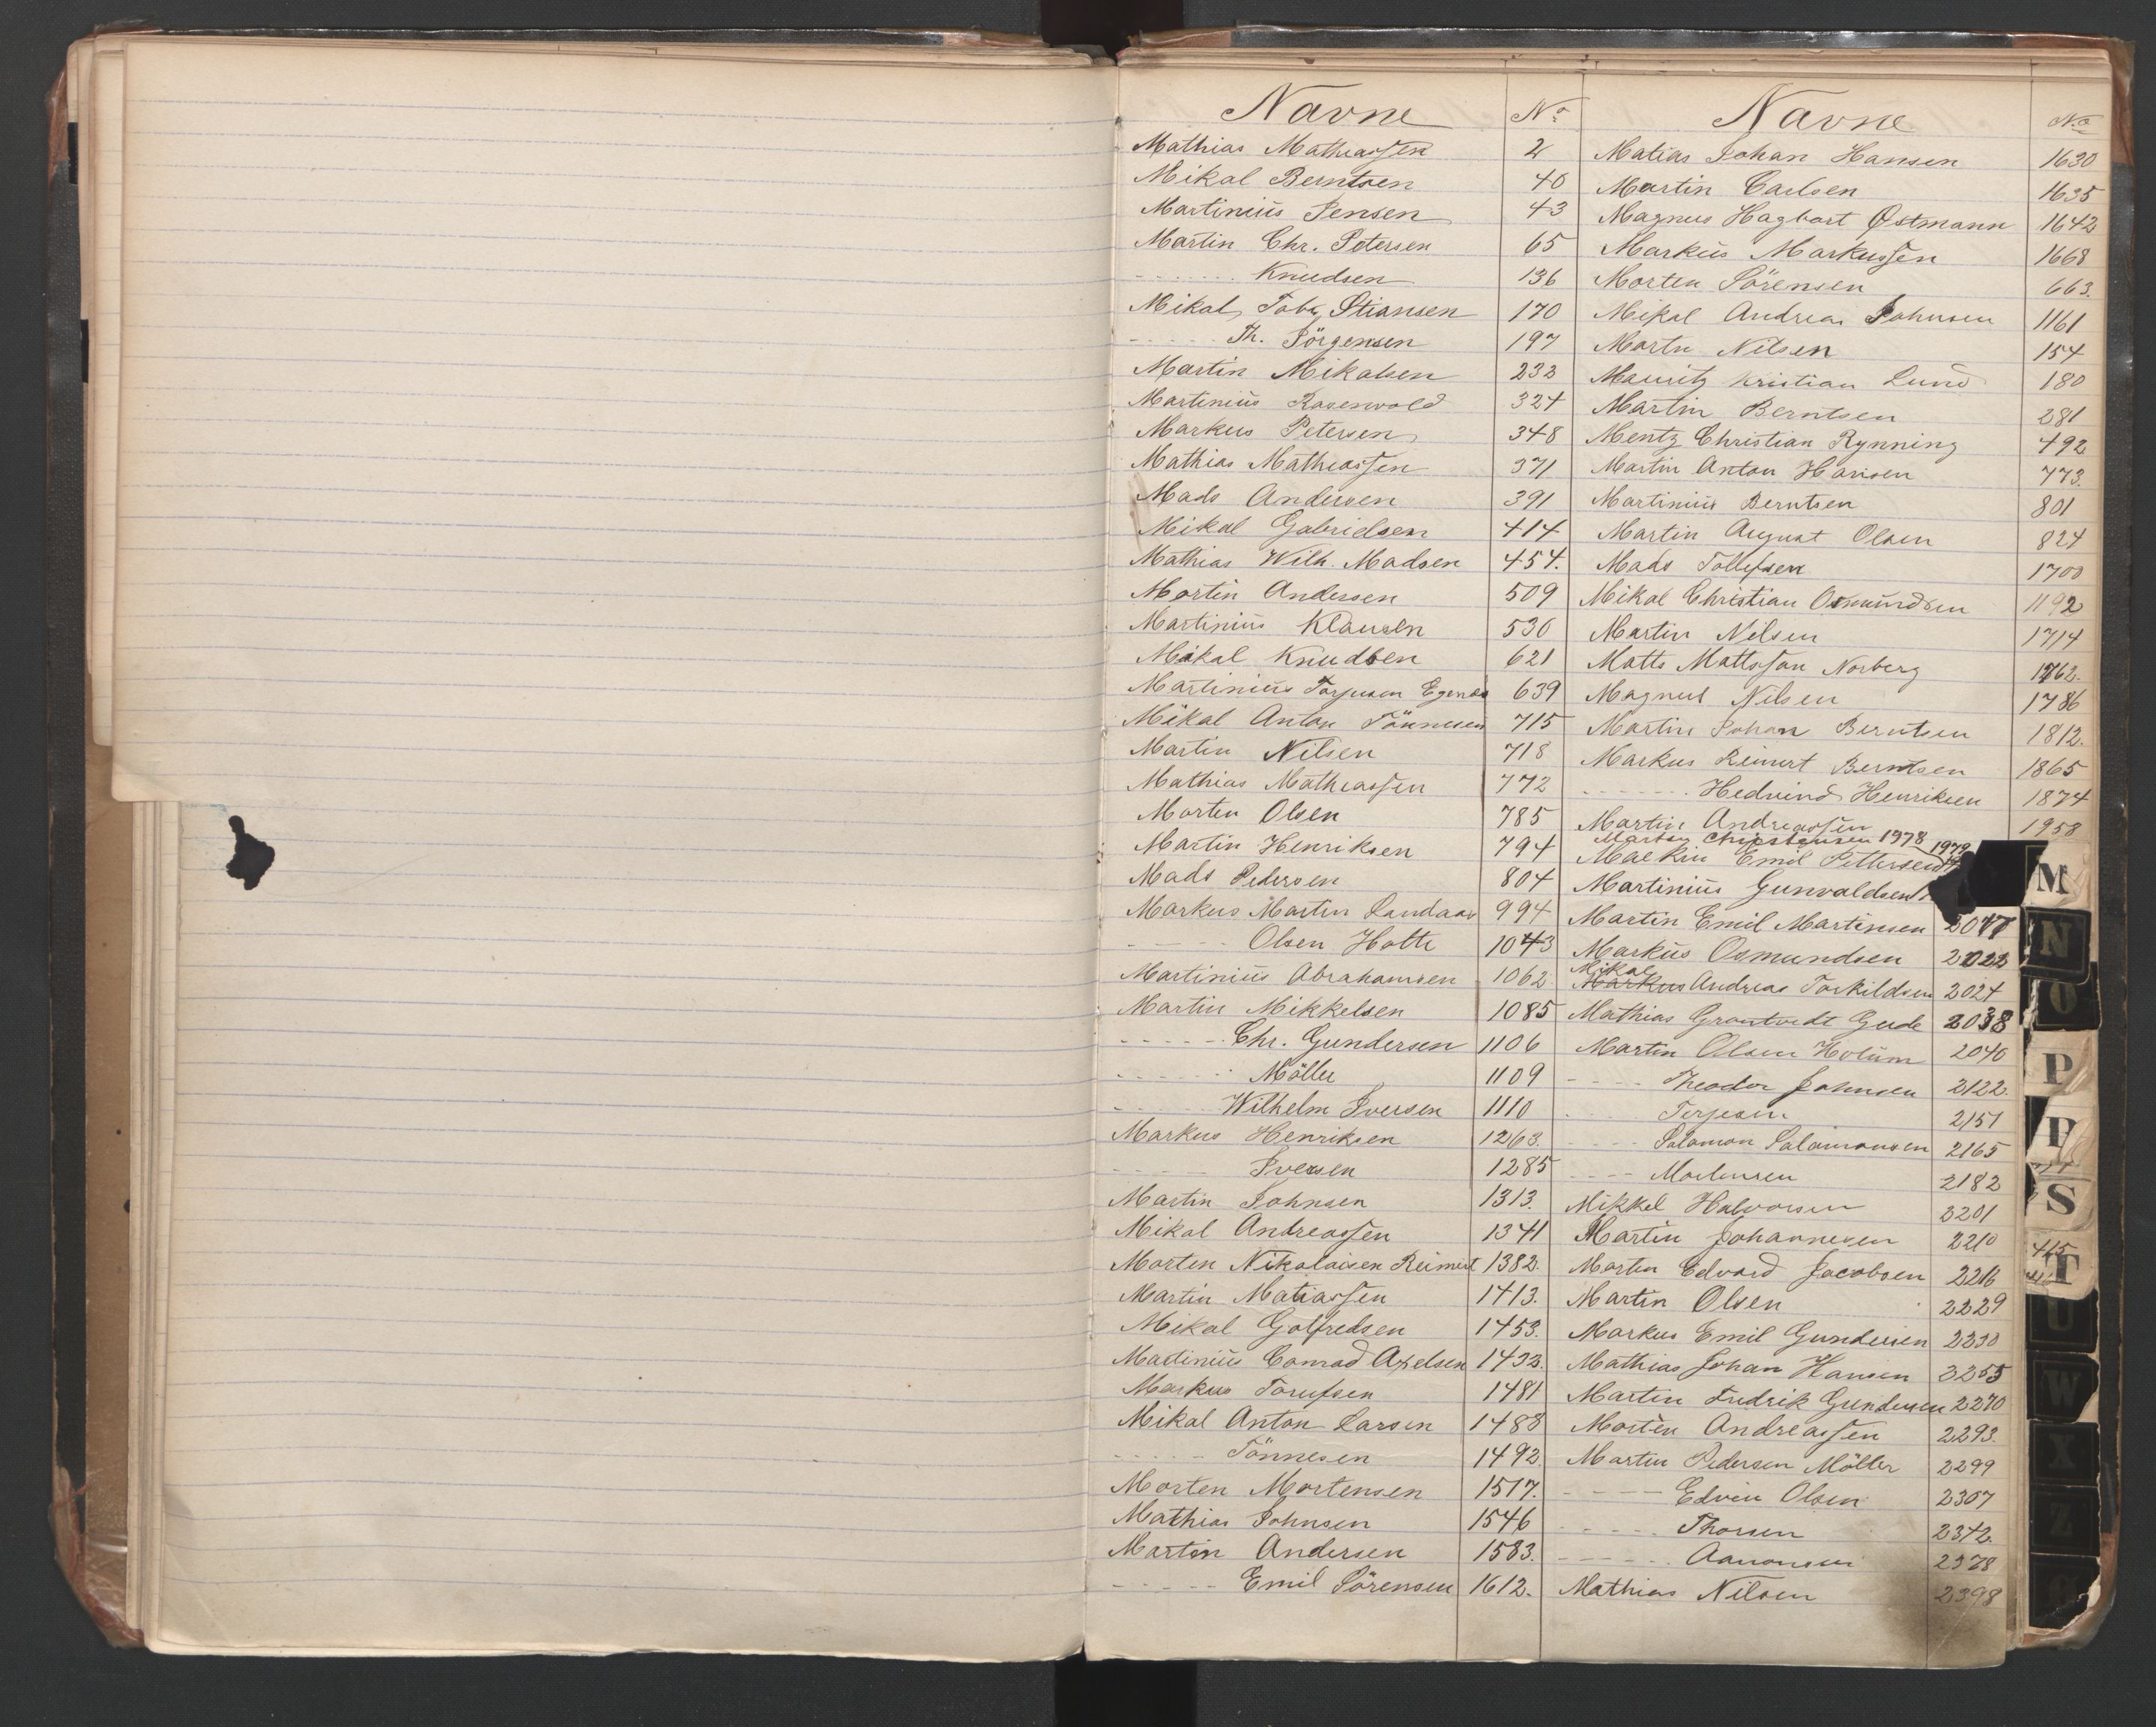 Navne No
Mathias Mathiassen 2
Mikal Berntsen 40
Martinius Jensen 43
Martin Chr. Petersen 65
------- Knudsen 136
Mikal Tobr Stiansen 170
----- Th. Jörgensen 197
Martin Mikalsen 233
Martinius Rosenvold 324
Markus Petersen 348
Mathias Mathiassen 371
Mads Andersen 391
Mikal Gabrielsen 414
Mathias Wilh. Madsen 454.
Martin Andersen 509
Martinius Klausen 530
Mikal Knudsen 621
Martinius Torjusen Egenes 639
Mikal Anton Tönnesen 715
Martin Nilsen 718
Mathias Mathiassen 772
Morten Olsen 785
Martin Henriksen 794
Mads Pedersen 804
Markus Martin Landaas 994
----- Olsen Hotte 1043
Martinius Abrahamsen 1062
Martin Mikkelsen 1085
----- Chr. Gundersen 1106
------ Möller 1109
----- Wilhelm Iversen 1110
Markus Henriksen 1263.
----- Iversen 1285
Martin Johnsen 1313.
Mikal Andreassen 1341
Morten Nikolaisen Reimert 1382.
Martin Matiassen 1413.
Mikal Golfredsen 1453.
Martinius Conrad Axelsen 1432.
Markus Torufsen 1481
Mikal Anton Larsen 1488
------ Tönnesen 1492.
Morten Mortensen 1517.
Mathias Johnsen 1546
Martin Andersen 1583.
----- Emil Sörensen 1612.
Navne No
Matias Johan Hansen 1630
Martin Carlsen 1635
Magnus Hagbart Östmann 1642
Markus Markussen 1668
Morten Sörensen 663.
Mikal Andreas Johnsen 1161
Martin Nilsen 154
Mauritz Kristian Lund 180
Martin Berntsen 281
Mentz Christian Rynning 492
Martin Anton Hansen 773.
Martinius Berntsen 801
Martin August Olsen 824
Mads Tollefsen 1700
Mikal Christian Osmundsen 1192
Martin Nilsen 1714
Matts Mattsson Norberg 1762.
Magnus Nilsen 1786
Martin Johan Berntsen 1812.
Markus Reinert Berntsen 1865
------- Hedvind Henriksen 1874
Martin Andreassen 1958
Martin Christensen 1978
Markin Emil Pettersen 1979
Martinius Gunvaldsen
Martin Emil Martinsen 2017
Markus Osmundsen 2022
Mikal
Markus Andreas Torkildsen 2024
Mathias Grontvedt Gude 2038
Martin Olsen Holum 2040
---- Theodor Johnsen 2122.
---- Terjesen 2151
---- Salamon Salamonsen 2165
---- Mortensen 2182
Mikkel Halvorsen 2201
Martin Johannesen 2210
Martin Edvard Jacobsen 2216
Martin Olsen 2229
Markus Emil Gundersen 2230
Mathias Johan Hansen 2255
Martin Fredrik Gundersen 2270
Morten Andreassen 2293.
Martin Pedersen Möller 2299
----- Edvin Olsen 2307
----- Thorsen 2342.
------ Aanonsen 2378
Mathias Nilsen 2398
M
N
O
P
P
S
T
U
W
X
Z